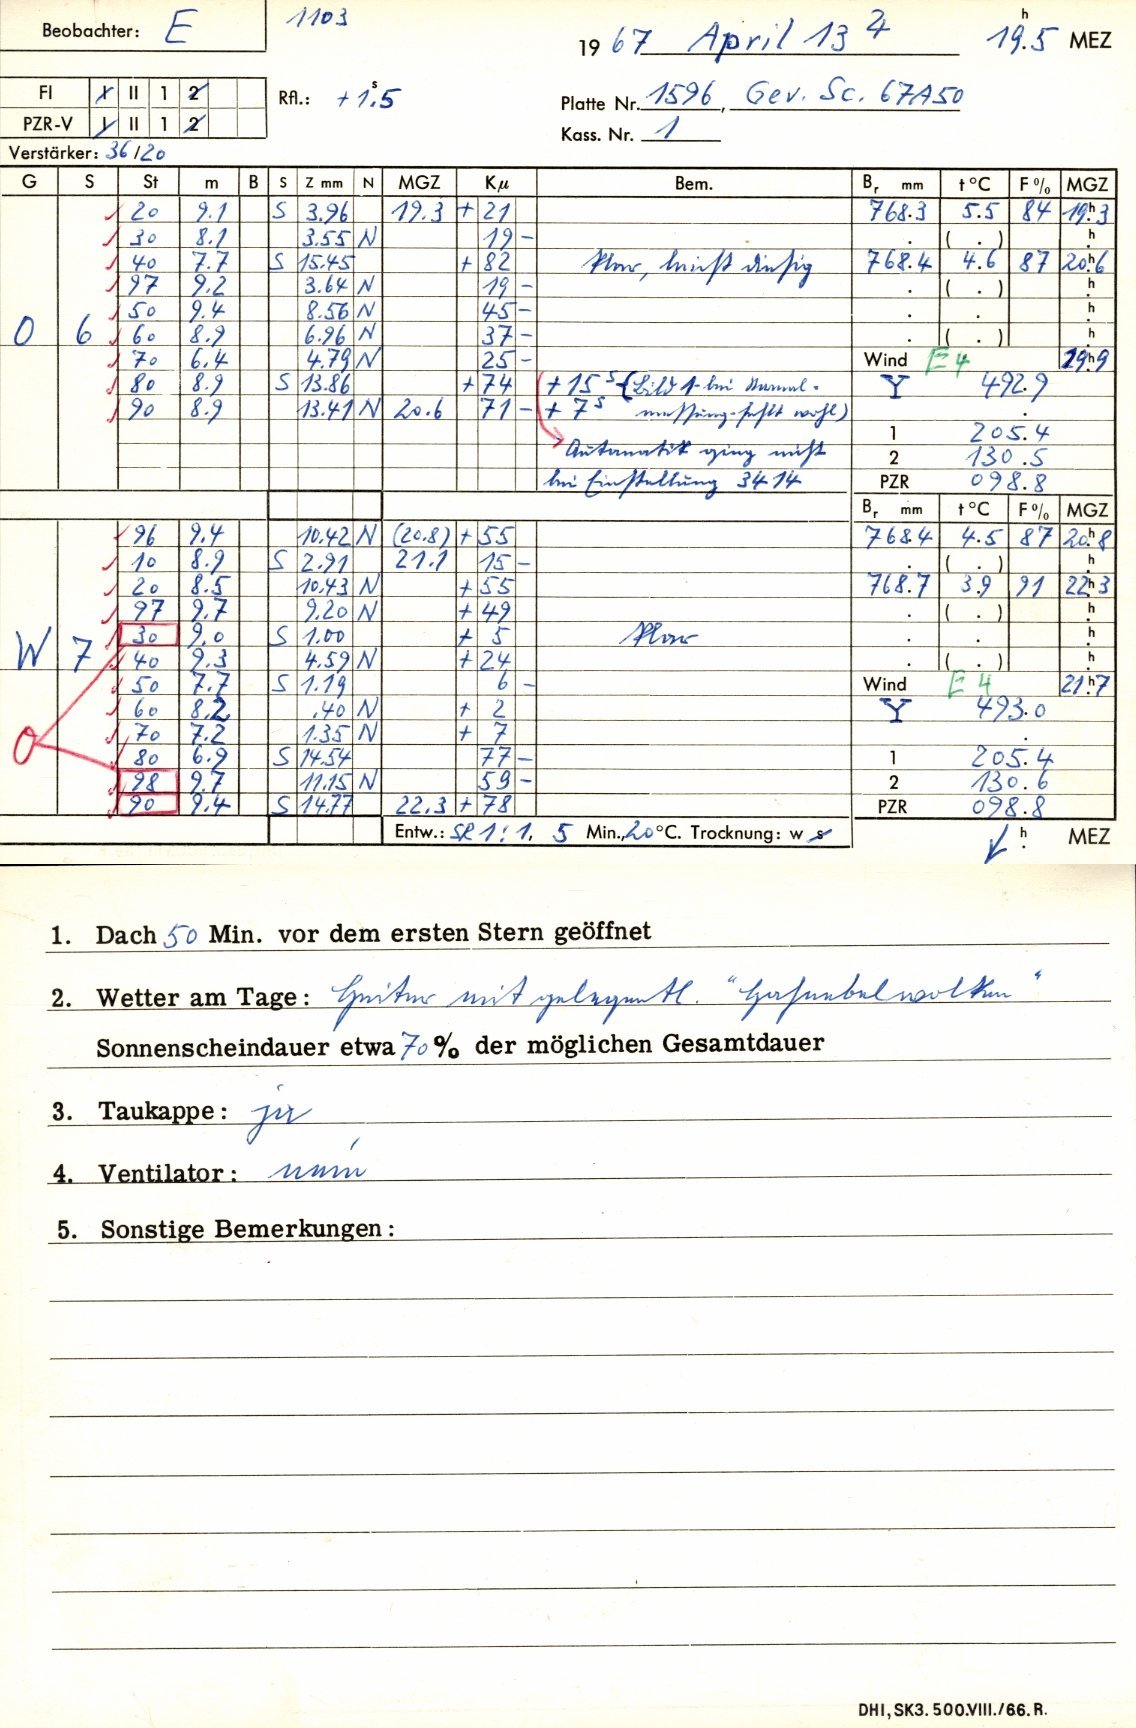 Beobachter: E 1103
19 67 April 13 4 19.5 h MEZ
FI I II 1 2 Rfl.: +1.5 s
PZR-V I II 1 2
Platte Nr. 1596, Gev. Sc. 67A50
Kass. Nr. 1
Verstärker: 36/20
G S St m B S Z mm N MGZ Kµ Bem. Br mm t °C F % MGZ
20 9.1 S 3.96 19.3 + 21 768.3 5.5 84 19.3 h
30 8.1 3.55 N 19 - . ( . ) h
40 7.7 S 15.45 + 82 klar, leicht diesig 768.4 4.6 87 20.6 h
97 9.2 3.64 N 19 - . ( . ) h
50 9.4 8.56 N 45 - . . h
O 6 60 8.9 6.96 N 37 - . ( . ) h
70 6.4 4.79 N 25 - Wind E 4 19.9 h
80 8.9 S 13.86 + 74 + 15 s (Bild 1 bei Normal- Y 492.9
90 8.9 13.41 N 20.6 71 - + 7 s messung fehlt wohl) .
Automatik ging nicht 1 205.4
2 130.5
bei Einstellung 3414 PZR 098.8
Br mm t °C F % MGZ
96 9.4 10.42 N (20.8) + 55 768.4 4.5 87 20.8 h
10 8.9 S 2.91 21.1 15 - . ( . ) h
20 8.5 10.43 N + 55 768.7 3.9 91 22.3 h
97 9.7 9.20 N + 49 . ( . ) h
W 7 30 9.0 S 1.00 + 5 klar . . h
40 9.3 4.59 N + 24 . ( . ) h
50 7.7 S 1.19 6 - Wind E 4 21.7 h
60 8.2 .40 N + 2 Y 493.0
70 7.2 1.35 N + 7 .
80 6.9 S 14.54 77 - 1 205.4
98 9.7 11.15 N 59 - 2 130.6
90 9.4 S 14.77 22.3 + 78 PZR 098.8
Entw.: SR 1:1. 5 Min., 20 °C. Trocknung: w s h MEZ
1. Dach 50 Min. vor dem ersten Stern geöffnet
2. Wetter am Tage: Heiter mit gelegentl. "Hochnebelwolken"
Sonnenscheindauer etwa 70 % der möglichen Gesamtdauer
3. Taukappe: ja
4. Ventilator: nein
5. Sonstige Bemerkungen:
DHI, SK3. 500.VIII./66. R.